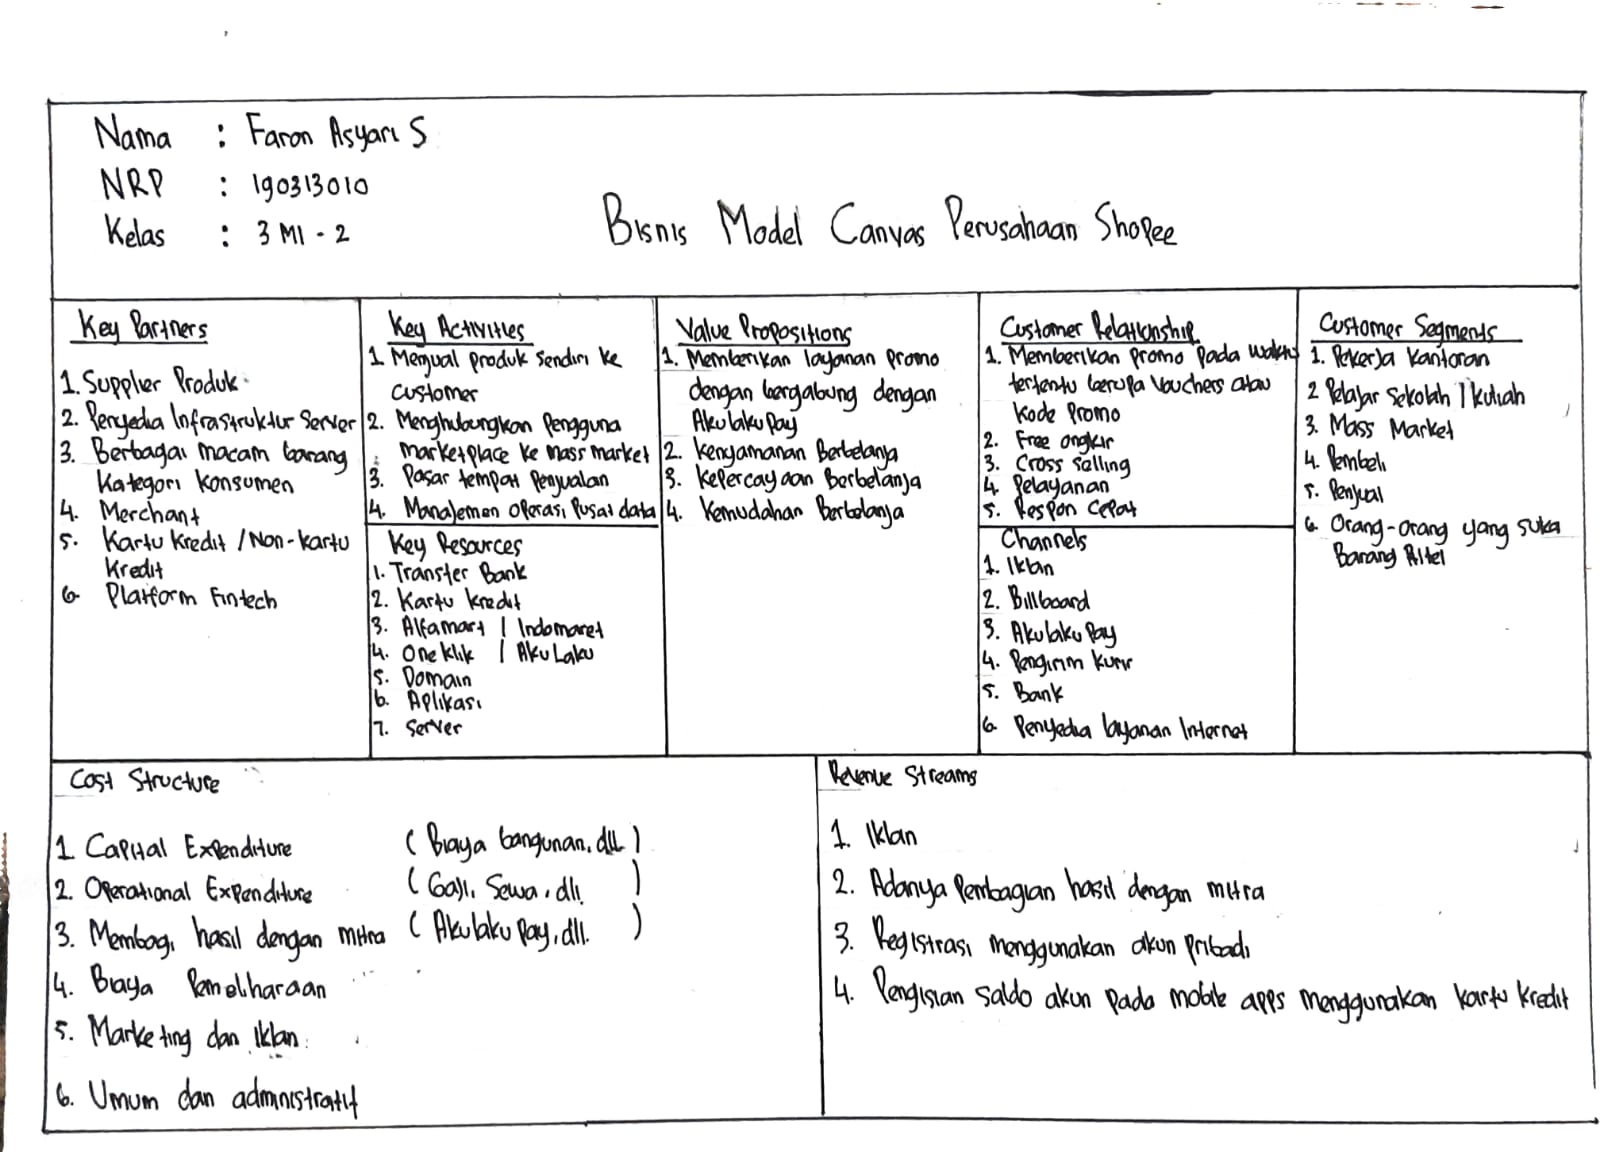 Nama : Faron Asyari S
NRP : 190313010
Kelas : 3 MI - 2
Bisnis Model Canvas Perusahaan Shopee
Key Partners
1. Supplier Produk
2. Penyedia Infrastruktur Server
3. Berbagai macam barang
Kategori konsumen
4. Merchant
5. Kartu kredit / Non-kartu
Kredit
6. Platform Fintech
Key Activities
1. Menjual produk sendiri ke
customer
2. Menghubungkan Pengguna
marketplace ke mass market
3. Pasar tempat Penjualan
4. Manajemen operasi Pusat data
Key Resources
1. Transfer Bank
2. Kartu kredit
3. Alfamart / Indomaret
4. One klik / Aku Laku
5. Domain
6. Aplikasi
7. Server
Value Propositions
1. Memberikan layanan promo
dengan bergabung dengan
Akulaku Pay
2. kenyamanan Berbelanja
3. kepercayaan Berbelanja
4. kemudahan Berbelanja
Customer Relationship
1. Memberikan promo pada waktu
tertentu berupa Vouchers atau
Kode Promo
2. Free ongkir
3. Cross Selling
4. Pelayanan
5. Respon Cepat
Channels
1. Iklan
2. Billboard
3. Akulaku Pay
4. Pengirim kurir
5. Bank
6. Penyedia layanan Internet
Customer Segments
1. Pekerja Kantoran
2 Pelajar Sekolah / kuliah
3. Mass Market
4. Pembeli
5. Penjual
6. Orang-orang yang suka
Barang Ritel
Cost Structure
1. Capital Expenditure ( Biaya bangunan, dll )
2. Operational Expenditure ( Gaji, Sewa, dll. )
3. Membagi hasil dengan mitra ( Akulaku Pay, dll. )
4. Biaya Pemeliharaan
5. Marketing dan Iklan
6. Umum dan administratif
Revenue Streams
1. Iklan
2. Adanya Pembagian hasil dengan mitra
3. Registrasi menggunakan akun pribadi
4. Pengisian saldo akun pada mobile apps menggunakan kartu kredit